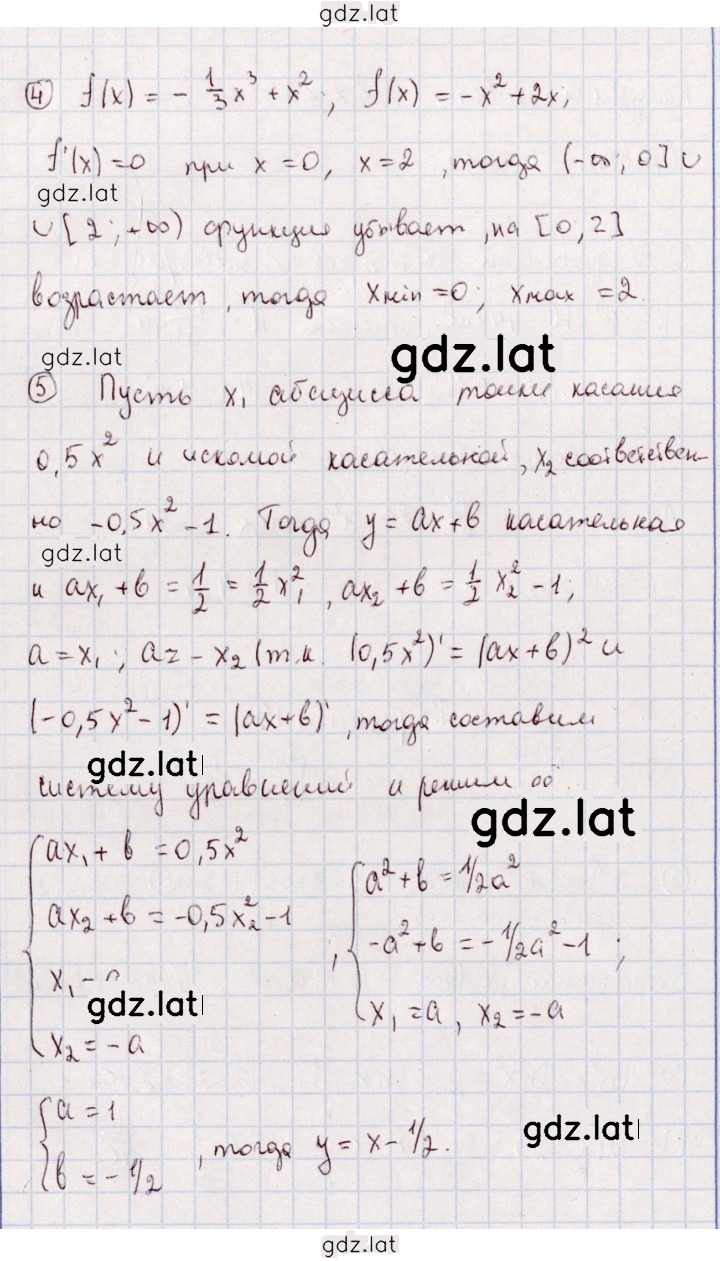 gdz.lat
④ f(x) = - 1/3 x³ + x²; f(x) = -x² + 2x,
f'(x) = 0 при x = 0, x = 2, тогда (-∞; 0] ∪
gdz.lat
∪ [2; +∞) функция убывает, на [0; 2]
возрастает, тогда xmin = 0; xmax = 2.
gdz.lat gdz.lat
⑤ Пусть x₁ абсцисса точки касания
0,5x² и искомой касательной, x₂ соответствен-
но -0,5x² - 1. Тогда y = ax + b касательная
gdz.lat
и ax₁ + b = 1/2 = 1/2 x₁², ax₂ + b = 1/2 x₂² - 1;
a = x₁; a = - x₂ (т.к. (0,5x²)' = (ax + b)² и
(-0,5x² - 1)' = (ax + b)', тогда составим
gdz.lat
систему уравнений и решим
gdz.lat
ax₁ + b = 0,5x²
ax₂ + b = -0,5x₂² - 1
x₁ =
gdz.lat
x₂ = - a
, a² + b = 1/2a²
-a² + b = -1/2a² - 1 ;
x₁ = a, x₂ = -a
a = 1
b = -1/2
, тогда y = x - 1/2.
gdz.lat
gdz.lat